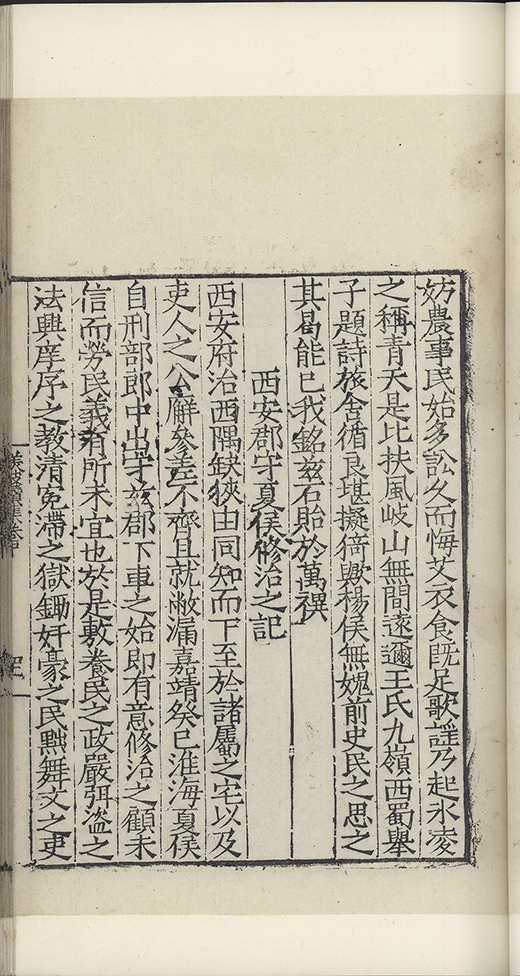 妨農事民始多訟久而悔艾衣食既足歌謡乃起氷凌
之稱青天是比扶風岐山無間遠邇王氏九嶺西蜀舉
子題詩旅舍循良堪擬猗歟楊侯無媿前史民之思之
其曷能已我銘兹石貽於萬禩
西安郡守夏侯修治之記
西安府治西隅缺狹由同知而下至於諸屬之宅以及
吏人之公廨參差不齊且就敝漏嘉靖癸巳淮海夏侯
自刑部郎中出守兹郡下車之始即有意修治之顧未
信而勞民義有所未宜也於是敷養民之政嚴弭盗之
法興庠序之教清寃滯之獄鋤奸豪之民黜舞文之吏